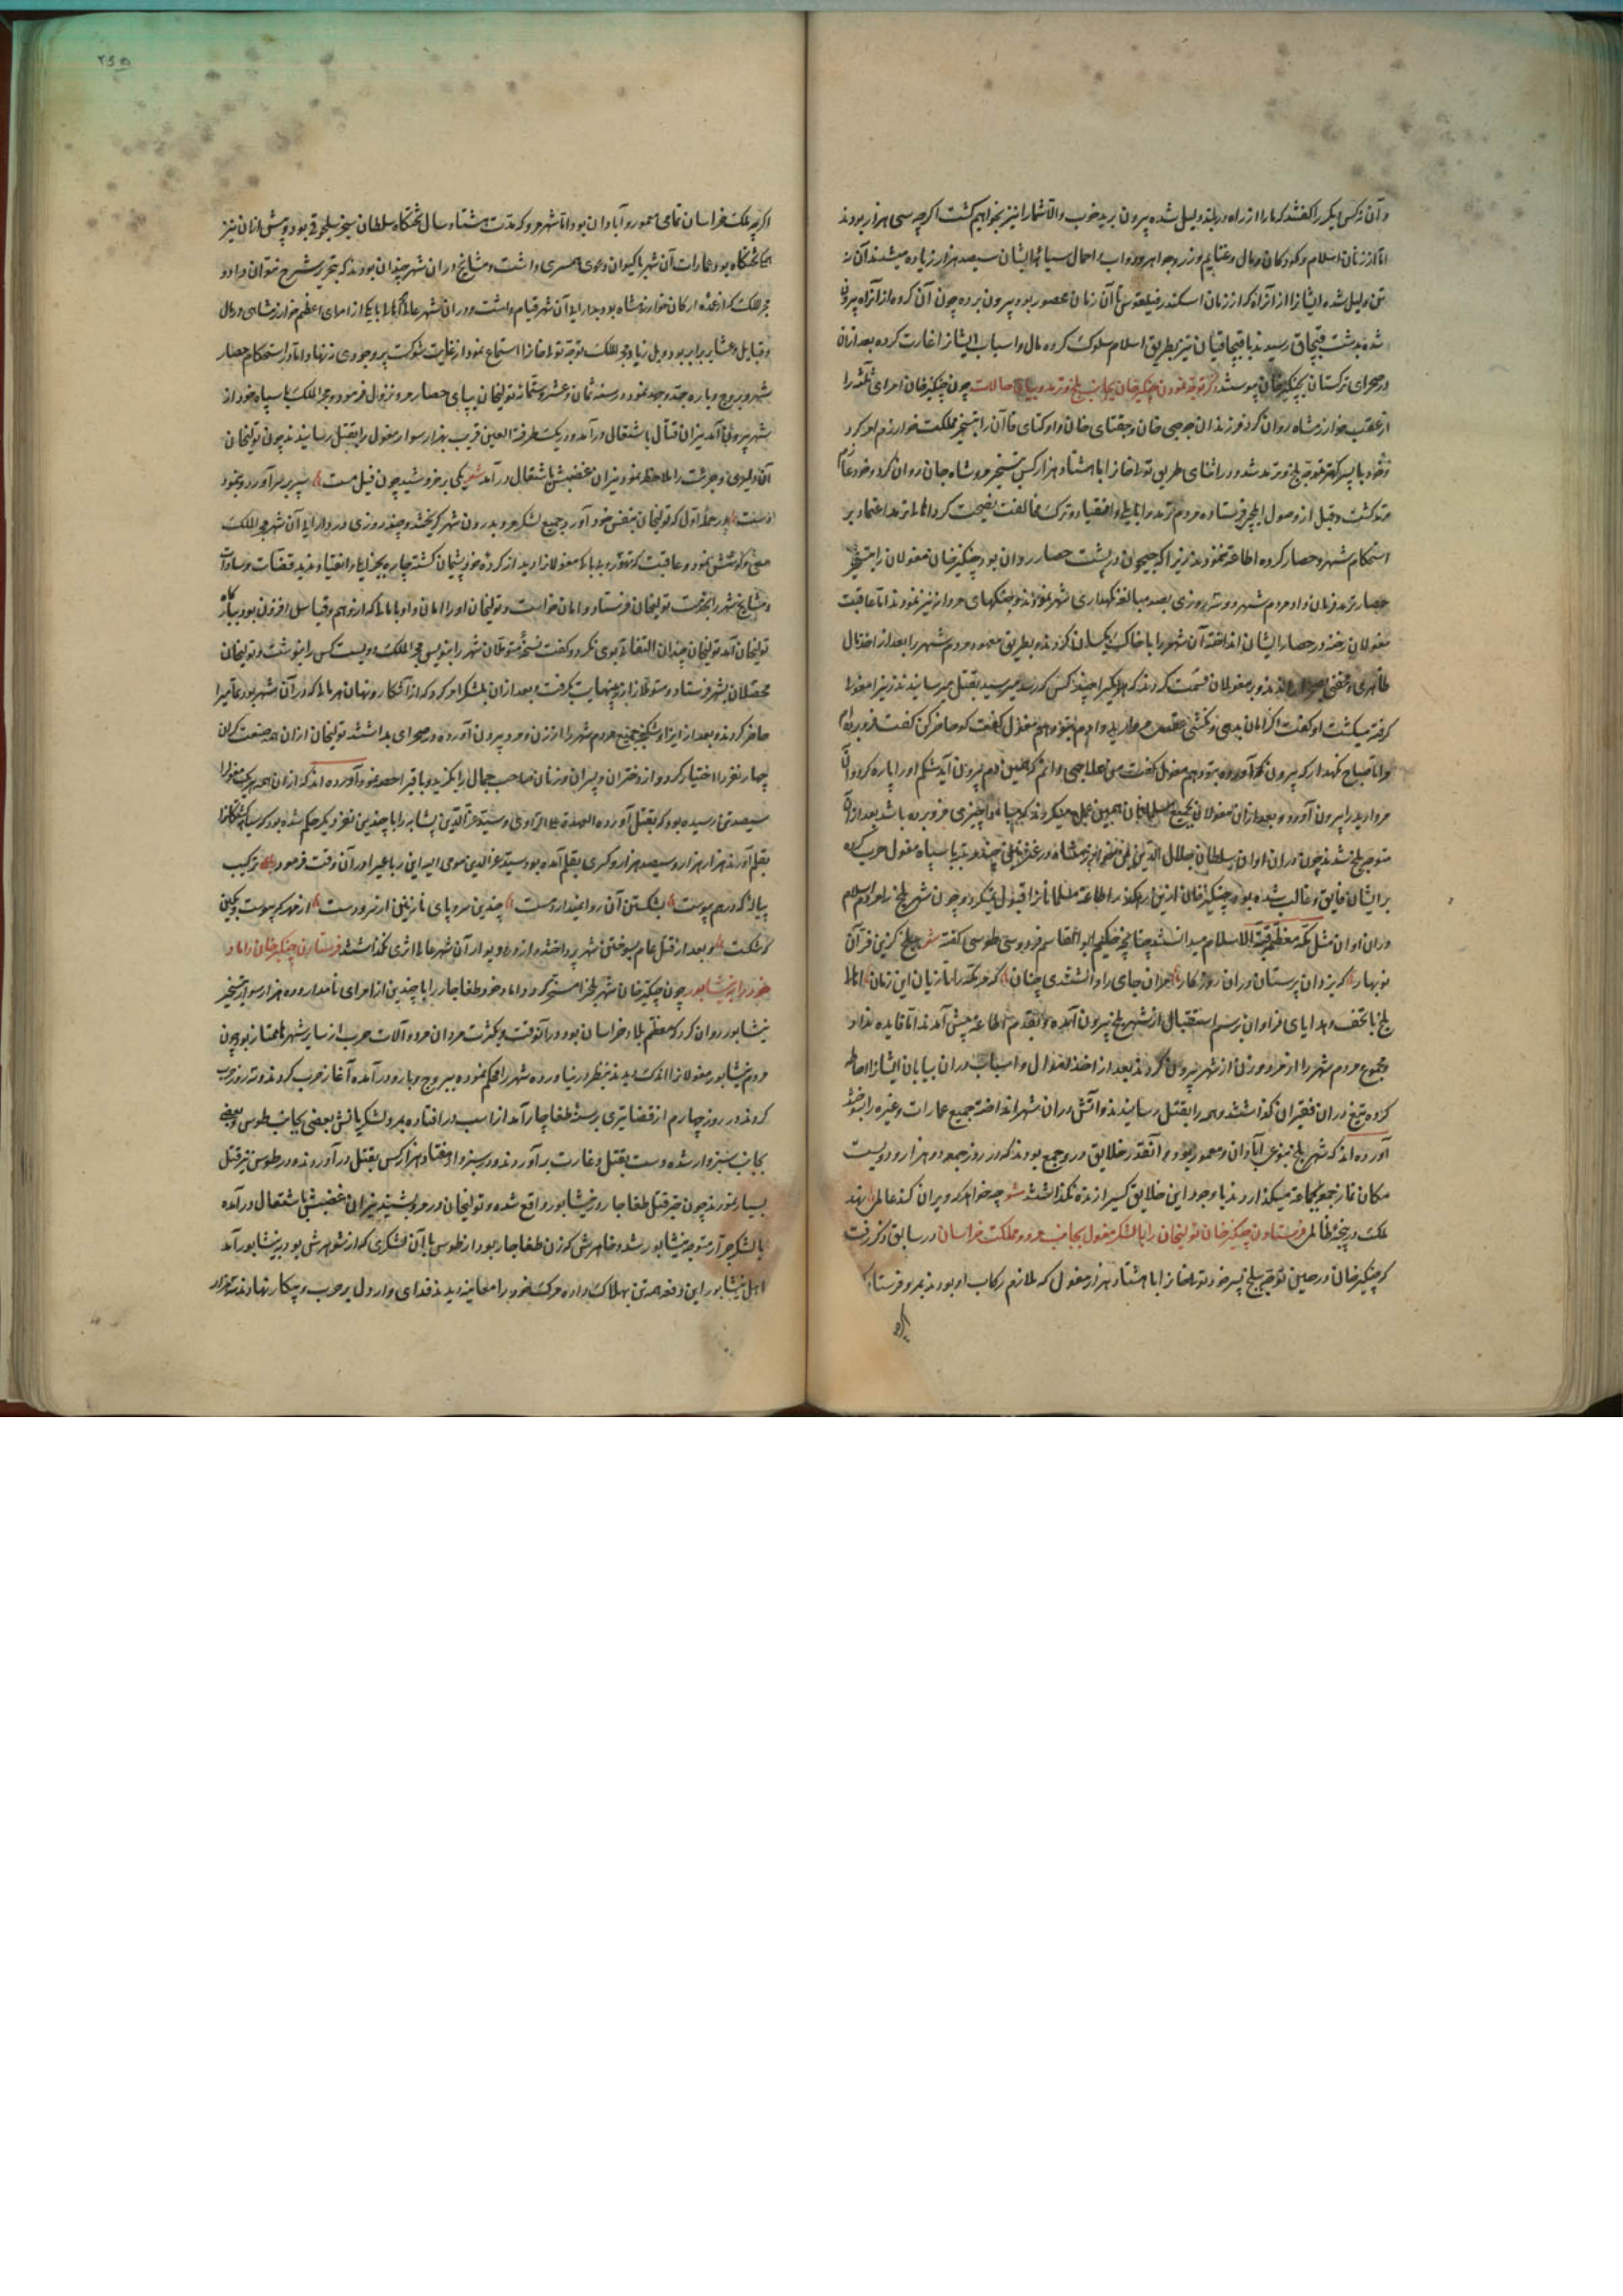 و آن نه کس دیگر را گفتند که ما را از راه دربند دلیل شده بیرون برید خوب والا شما را نیز بخواهیم کشت اگرچه سی هزار بودند
اما از زنان اسلام و کودکان و مال و غنایم و زر و جواهر و دواب و احمال سپاه ایشان سیصد هزار زیاده میشدند آن نه
تن دلیل شده ایشانرا از آن راه که از زمان اسکندر فیلقوس تا آن زمان محصور بود بیرون برده چون آن گروه از آن راه بیرون
شده بدشت قبچاق رسیدند با قبچاقیان نیز بطریق اسلام سلوک کرده مال و اسباب ایشانرا غارت کرده بعد از آن
در صحرای ترکستان بچنگیز خان پیوستند ذکر توجه نمودن چنگیز خان بجانب بلخ و ترمد و بیان حالات چون چنگیز خان امرای ثلثه را
از عقب خوارزمشاه روان کرد فرزندان جوجی خان و جغتای خان و اوکتای قاآن را بتسخیر مملکت خوارزم امر کرد
و خود با پسر کهتر متوجه بلخ و ترمد شد و در اثنای طریق تولیخانرا با هشتاد هزار کس بتسخیر مرو شاه جان روان کرد و خود عازم
ترمد گشت و قبل از وصول ایلچی فرستاده مردم ترمد را بایلی و انقیاد و ترک مخالفت نصیحت کرد اهالی ترمد اعتماد بر
استحکام شهر و حصار کرده اطاعت ننمودند زیرا که جیحون در پشت حصار روان بود چنگیز خان مغولان را بتسخیر
حصار ترمد فرمان داد مردم شهر دو سه روزی بصد مبالغه نگهداری شهر نمودند و جنگهای مردانه نیز نمودند اما عاقبت
مغولان رخنه در حصار ایشان انداخته آن شهر را با خاک یکسان کردند و بطریق معهود مردم شهر را بعد از اخذ مال
ظاهری و مخفی بصحرا راندند و بر مغولان قسمت کردند که هر یکی را چند کس که رسد میرسید بقتل میرسانیدند زنی را مغولی
گرفت میکشت او گفت اگر امان بدهی و نکشی عقد مروارید دارم بتو دهم مغول گفت که حاضر کن گفت فرو برده ام
مرا تا صباح نگهدار که بیرون آورده بتو دهم مغول گفت من علاجی دانم که همین دم بیرون آید شکم او را پاره کرد و آن
مروارید را بیرون آورد و بعد از آن مغولان بجمیع مسلمانان همین عمل میکردند که مبادا چیزی فرو برده باشد بعد از آن
متوجه بلخ شدند چون در آن اوان سلطان جلال الدین ابن خوارزمشاه در غزنین چند مرتبه با سپاه مغول حرب کرده
بر ایشان فایق و غالب شده بود چنگیز خان از این رهگذر اطاعت مسلمانانرا قبول نمیکرد و چون شهر بلخ را مردم اسلام
در آن اوان مثل مکه معظمه قبة الاسلام میدانستند چنانچه حکیم ابوالقاسم فردوسی طوسی گفته شعر ببلخ گزین فرآن
نوبهار که یزدان پرستان در آن روزگار مر آن جای را داشتندی چنان که مر مکه را تازیان این زمان اهالی
بلخ با تحف و هدایای فراوان برسم استقبال از شهر بلخ بیرون آمده و بقدم اطاعت پیش آمدند اما فایده نداد
و مجموع مردم شهر را از مرد و زن از شهر بیرون کردند بعد از اخذ اموال و اسباب در آن بیابان ایشانرا احاطه
کرده تیغ در آن فقیران گذاشتند و همه را بقتل رسانیدند و آتش در آن شهر انداخته جمیع عمارات و غیره را بسوختند
آورده اند که شهر بلخ بنوعی آبادان و معمور بود و آنقدر خلایق در وی جمع بودند که در روز جمعه در هزار و دویست
مکان نماز جمعه بجماعت میگذاردند با وجود این خلایق کسی را زنده نگذاشتند شعر چو خواهد که ویران کند عالمی نهد
ملک در پنجه ظالمی فرستادن چنگیز خان تولیخان را با لشکر مغول بجانب مرو و مملکت خراسان در سابق ذکر رفت
که چنگیز خان در حین توجه ببلخ پسر خود تولیخانرا با هشتاد هزار مغول که ملازم رکاب او بودند بمرو فرستاد
اگرچه ملک خراسان تمامی معمور و آبادان بود اما شهر مرو که مدت هشتاد سال تختگاه سلطان سنجر سلجوقی بود و پیش از آن نیز
تختگاه بود عمارات آن شهر با کیوان دعوی همسری داشت و مشایخ در آن شهر چندان بودند که بتحریر شرح نتوان داد و
مجیر الملک که از عمده ارکان خوارزمشاه بود بدارایی آن شهر قیام داشت و در آن شهر عالی از امرای اعظم خوارزمشاهی و مال
و قبایل و عشایر برابر بود و بل زیاد مجیر الملک توجه تولیخانرا استماع نمود از غایت شوکت پیر وجودی ننهاد و اما در استحکام حصار
شهر و بروج و باره جد و جهد نمود در سنه ثمان و عشر و ستمائه تولیخان بپای حصار مرو نزول فرمود و مجیر الملک با سپاه خود از
شهر بیرون آمد نیران قتال باشتعال درآمد و در یک طرفة العین قریب بهزار سوار مغول را بقتل رسانیدند چون تولیخان
آن دلیری و جرئت را ملاحظه نمود نیران غضبش باشتعال درآمد شعر یکی برخروشید چون فیل مست سپر بر سر آورد و بنمود
دست در حمله اول که تولیخان بنفس خود آورد جمیع لشکر مرو بدرون شهر گریختند و چند روزی در دارایی آن شهر مجیر الملک
سعی و کوشش نمود و عاقبت که تهور مغولانرا دید از کرده خود پشیمان گشته چاره بجز ایلی و انقیاد ندید قضات و سادات
و مشایخ شهر را بخدمت تولیخان فرستاد و امان خواست و تولیخان او را امان داد با مالی که از وهم و قیاس افزون بود ببارگاه
تولیخان آمد تولیخان چندان التفاتی بوی نکرد و گفت نسخه متمولان شهر را بنویس مجیر الملک دویست کس را بنوشت و تولیخان
محصلان بشهر فرستاد و متمولانرا زر بینهایت بگرفت و بعد از آن بلشکر امر کرد که از آشکار و نهان هر مالی که در آن شهر بود
حاضر کردند و بعد از ایذا و شکنجه جمیع مردم شهر را از زن و مرد بیرون آورده در صحرای بداشتند تولیخان از آن همه صنعت گران
چهار نفر را اختیار کرد و از دختران و پسران و زنان صاحب جمال را بگزید و باقی را حصه نمود آورده اند که از آن همه هر یک مغول را
سیصد تن رسیده بود که بقتل آورده العهدة علی الراوی و سید عز الدین نسابه را با چندین نفر دیگر حکم شده بود که کشتگانرا
بقلم آورند هزار هزار و سیصد هزار و کسری بقلم آمده بود سید عز الدین مومی الیه این رباعی را در آن وقت فرمود رباعی ترکیب
پیاله که درهم پیوست بشکستن آن روا نمیدارد مست چندین سر و پای نازنین از سر دست از مهر که پیوست و بکین
که شکست و بعد از قتل عام بسوختن شهر پرداختند و از در و دیوار آن شهر عالی اثری نگذاشتند فرستادن چنگیز خان داماد
خود را به نیشابور چون چنگیز خان شهر بلخ را مسخر کرد داماد خود طغاجار را با چندین از امرای نامدار و ده هزار سوار بتسخیر
نیشابور روان کرد که معظم بلاد خراسان بود و در آنوقت بکثرت مردان مرد و آلات حرب از سایر شهرها ممتاز بود چون
مردم نیشابور مغولانرا اندک دیدند بنظر در نیاورده شهر را محکم نموده ببروج و بارو درآمده آغاز حرب کردند و سه روز حرب
کردند در روز چهارم از قضا تیری بر سینه طغاجار آمد از اسب در افتاده بمرد لشکریانش بعضی بجانب طوس و بعضی
بجانب سبزوار شده دست بقتل و غارت برآوردند و در سبزوار هفتاد هزار کس بقتل درآوردند و در طوس نیز قتل
بسیار نمودند چون خبر قتل طغاجار در نیشابور واقع شده و تولیخان در مرو بشنید نیران غضبش باشتعال درآمده
با لشکر جرار متوجه نیشابور شد و خواهرش که زن طغاجار بود از طوس با آن لشکری که از شوهرش بود به نیشابور آمد
اهل نیشابور این دفعه همه تن بهلاک داده مرگ خود را معاینه دیدند فدایی وار دل بر حرب و پیکار نهادند